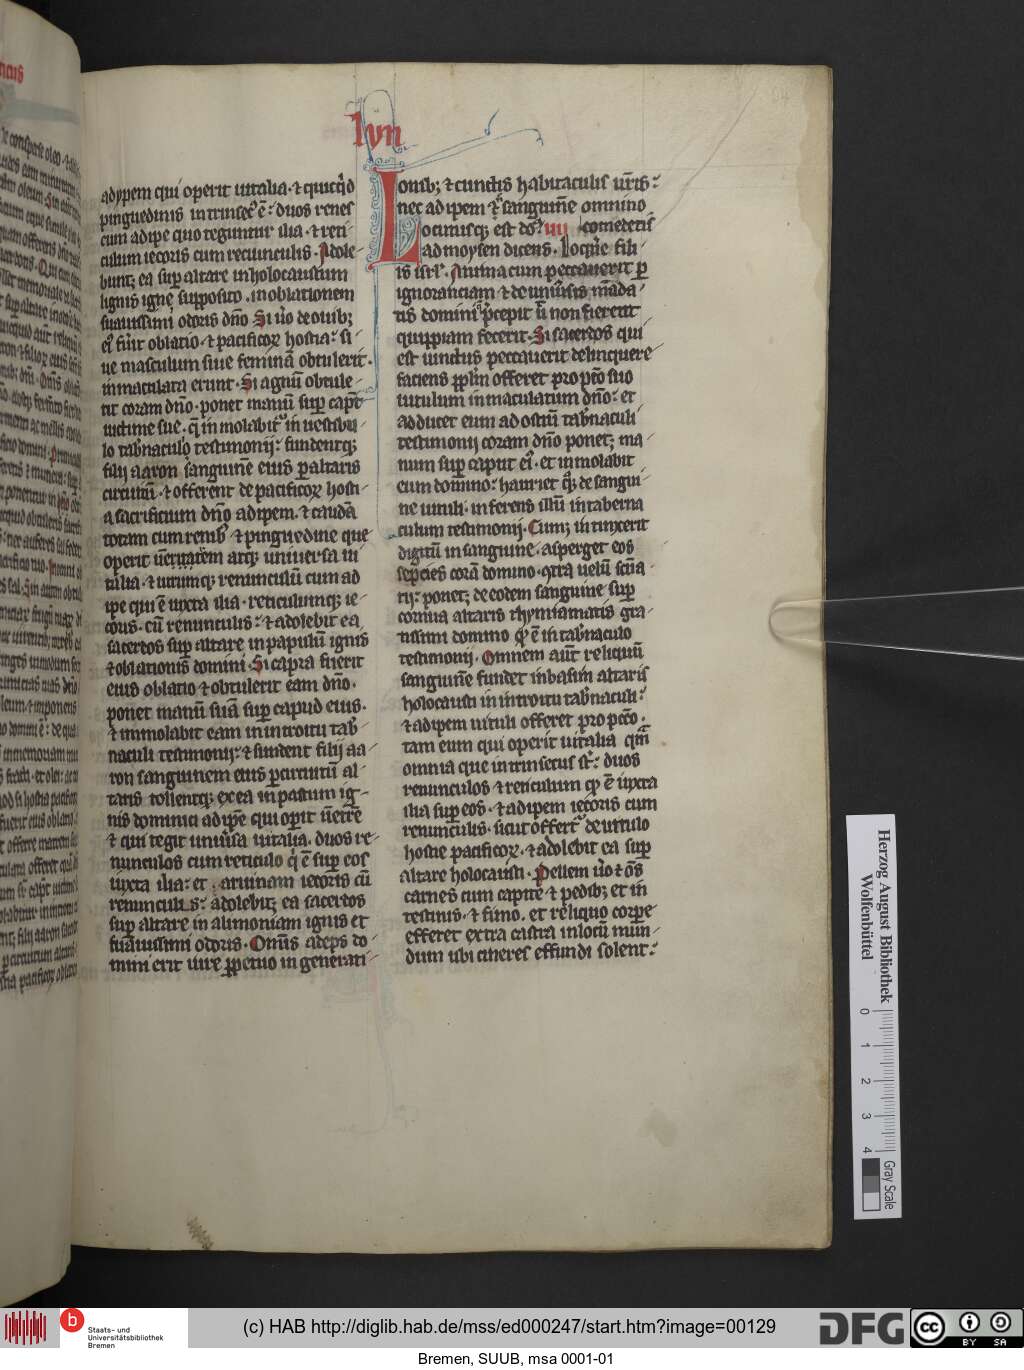 lvn
adypem qui operit uitalia · ⁊ quicq̇d
pinguedinis intrinsecꝰ ē : duos renes
cum adipe quo teguntur ilia · ⁊ reti
culum iecoris cum reciunculis · Adole
bunt; ea suꝑ altare in holocaustum
lignis igne supposito · in oblationem
suauissimi odoris dn̄o Si ūo de ouibꝫ
eiꝰ fūit oblatio · ⁊ pacificoꝝ hostia : si
ue masculum siue feminā obtulerit ·
inmaculata erunt · Si agnū obtule
rit coram dn̄o · ponet manū suꝑ capᷓt
uictime sue · q̄ inmolabitᷣ in uestibu
lo tab̄naculo testimonij : fundentqꝫ
filij aaron sanguinē eius ꝑ altaris
circuitū · ⁊ offerent de pacificoꝝ hosti
a sacrificium dn̄o adipem · ⁊ caudā
totam cum renibꝰ ⁊ pinguedine que
operit uentrem atqꝫ uniuersa ui
talia · ⁊ utrumqꝫ renunculū cum ad
ipe qui ē iuxta ilia · reticulumqꝫ ie
coris · cū renunculis : ⁊ adolebit ea
sacerdos suꝑ altare in papulū ignis
⁊ oblationis domini · Si capra fuerit
eius oblatio ⁊ obtulerit eam dn̄o ·
ponet manū suā suꝑ capud eius ·
⁊ immolabit eam in introitu tab̄
naculi testimonij : ⁊ fundent filij aa
ron sanguinem eius ꝑ circuitū al
taris tollentqꝫ ex ea in pastum ig
nis dominici adipē qui oꝑit uentrē
⁊ qui tegit uniūsa uitalia · duos re
nunculos cum reticulo q̇ ē suꝑ eos
iuxta ilia : et · aruinam iecoris cū
renunculis : adolebitꝫ ea sacerdos
suꝑ altare in alimoniam ignis et
suauissimi odoris · Omīs adeps do
mini erit iure ꝑpetuo in generati
onibꝫ ⁊ cunctis habitaculis ur̄is :
nec adipem ⁊ sanguinē omnino
comedetis
Locutusqꝫ est dn̄s iiii
ad moysen dicens · Loqr̄e fili
is isrl̄ · Anima cum peccauerit ꝑ
ignoranciam ⁊ de uniūsis māda
tis domini q̄ p̄cepit ut non fierent
quippiam fecerit · Si sacerdos qui
est unctus peccauerit delinquere
faciens ppl̄m offeret pro pc̄o suo
uitulum inmaculatum dn̄o : et
adducet eum ad ostiū tab̄naculi
testimonij coram dn̄o ponetꝫ ma
num suꝑ caput eiꝰ · et inmolabit
eum domino : hauriet q̄ꝫ de sangui
ne uituli · inferens illū in taberna
culum testimonij · Cumꝫ intinxerit
digitū in sanguine · asperget eos
sepcies corā domino · ꝯtra uelū scn̄a
rij : ponetꝫ de eodem sanguine suꝑ
cornua altaris thymiamatis gra
tissimi domino qđ ē in tab̄naculo
testimonij · Omnem aūt reliquū
sanguinē fundet in basim altaris
holocausti in introitu tab̄naculi :
⁊ adipem uituli offeret pro pctō ·
tam eum qui operit uitalia qm̄
omnia que intrinsecus st̄ : duos
renunculos ⁊ reticulum qđ ē iuxta
ilia suꝑ eos · ⁊ adipem iecoris cum
renunculis · sicut offertᷣ de uitulo
hostie pacificoꝝ · ⁊ adolebit ea suꝑ
altare holocausti · Pellem ūo ⁊ om̄s
carnes cum capite ⁊ pedibꝫ et in
testinis · ⁊ fimo · et reliquo corꝑe
efferet extra castra in locū mun
dum ubi cineres effundi solent :
Herzog August Bibliothek
Wolfenbüttel
0 1 2 3 4
Gray Scale
b
Staats- und
Universitätsbibliothek
Bremen
(c) HAB http://diglib.hab.de/mss/ed000247/start.htm?image=00129
DFG
cc BY SA
Bremen, SUUB, msa 0001-01